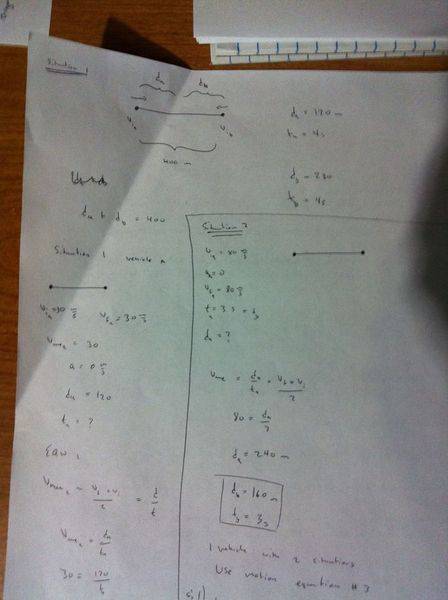 Situation 1
da db
via vib
400 m
da = 120 m
ta = 4s
db = 280
tb = 4s
da + db = 400
Situation 1 vehicle a
via = 30 m/s vfa = 30 m/s
vavea = 30
a = 0 m/s
da = 120
ta = ?
vavea = (vf + vi)/2 = d/t
vavea = da/ta
30 = 120/ta
Situation 2
via = 80 m/s
aa = 0
vfa = 80 m/s
ta = 3s = tb
da = ?
vave = da/ta = (vf + vi)/2
80 = da/3
da = 240 m
db = 160 m
tb = 3s
1 vehicle with 2 situations
Use motion equation #3